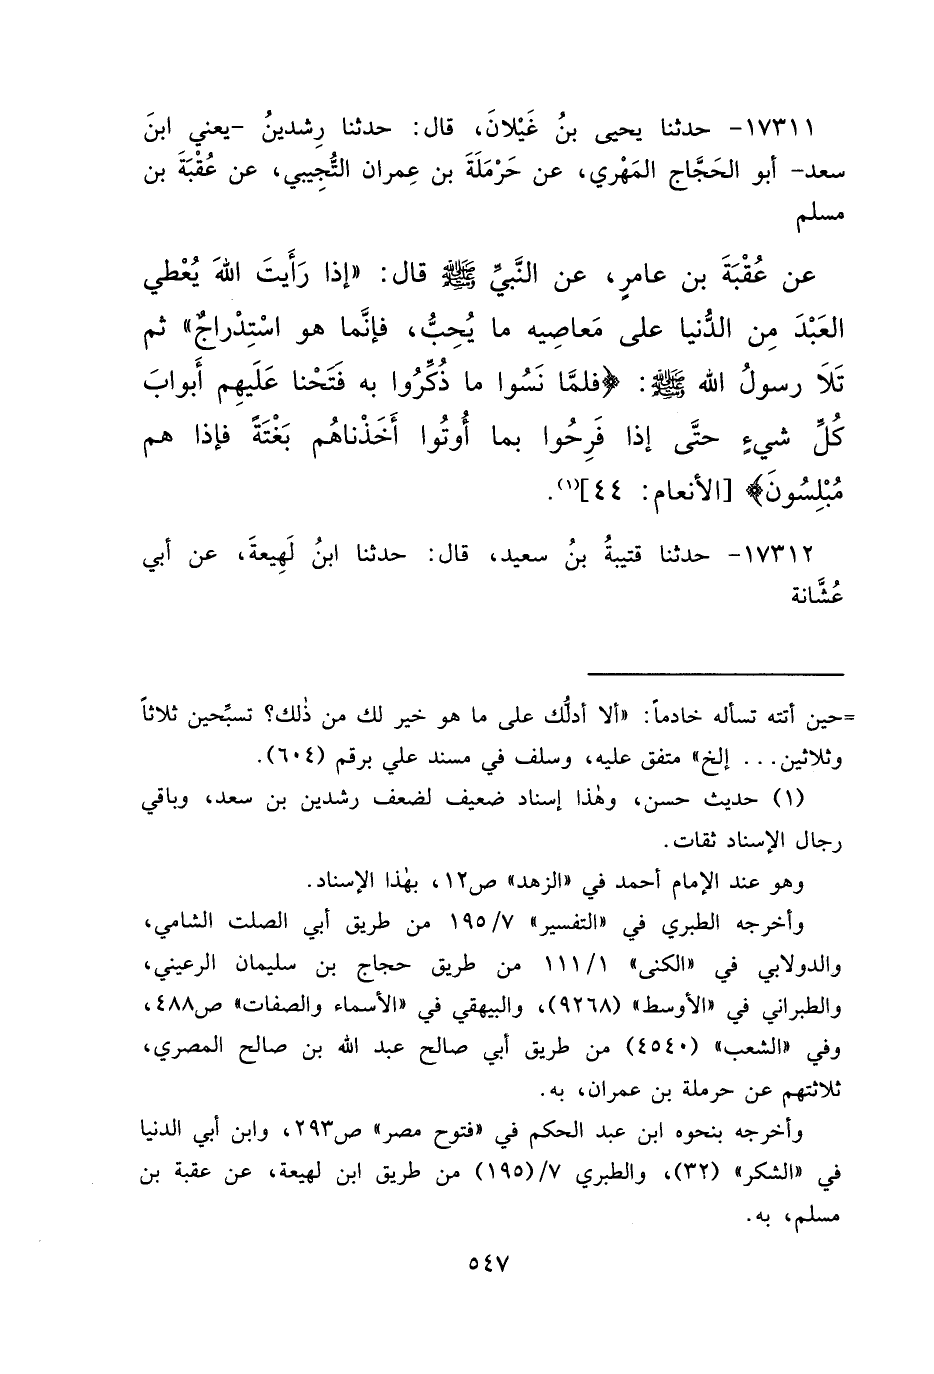 ١٧٣١١- حدثنا يحيى بنُ غَيْلانَ، قال: حدثنا رِشدينُ -يعني ابنَ
سعد- أبو الحَجَّاج المَهْري، عن حَرْمَلَةَ بن عِمران التُّجِيبي، عن عُقْبَةَ بن
مسلم
عن عُقْبَةَ بن عامرٍ، عن النَّبيِّ ﷺ قال: «إذا رَأَيتَ اللهَ يُعْطي
العَبْدَ مِن الدُّنيا على مَعاصِيه ما يُحِبُّ، فإنَّما هو اسْتِدْراجٌ» ثم
تَلَا رسولُ الله ﷺ: ﴿فلمَّا نَسُوا ما ذُكِّرُوا به فَتَحْنا عَلَيهِم أَبوابَ
كُلِّ شيءٍ حتَّى إذا فَرِحُوا بما أُوتُوا أَخَذْناهُم بَغْتَةً فإذا هم
مُبْلِسُونَ﴾ [الأنعام: ٤٤](١).
١٧٣١٢- حدثنا قتيبةُ بنُ سعيد، قال: حدثنا ابنُ لَهِيعةَ، عن أبي
عُشَّانة
=حين أتته تسأله خادماً: «ألا أدلُّك على ما هو خير لك من ذٰلك؟ تسبِّحين ثلاثاً
وثلاثين... إلخ» متفق عليه، وسلف في مسند علي برقم (٦٠٤).
(١) حديث حسن، وهٰذا إسناد ضعيف لضعف رشدين بن سعد، وباقي
رجال الإسناد ثقات.
وهو عند الإمام أحمد في «الزهد» ص١٢، بهٰذا الإسناد.
وأخرجه الطبري في «التفسير» ١٩٥/٧ من طريق أبي الصلت الشامي،
والدولابي في «الكنى» ١١١/١ من طريق حجاج بن سليمان الرعيني،
والطبراني في «الأوسط» (٩٢٦٨)، والبيهقي في «الأسماء والصفات» ص٤٨٨،
وفي «الشعب» (٤٥٤٠) من طريق أبي صالح عبد الله بن صالح المصري،
ثلاثتهم عن حرملة بن عمران، به.
وأخرجه بنحوه ابن عبد الحكم في «فتوح مصر» ص٢٩٣، وابن أبي الدنيا
في «الشكر» (٣٢)، والطبري ٧/(١٩٥) من طريق ابن لهيعة، عن عقبة بن
مسلم، به.
٥٤٧